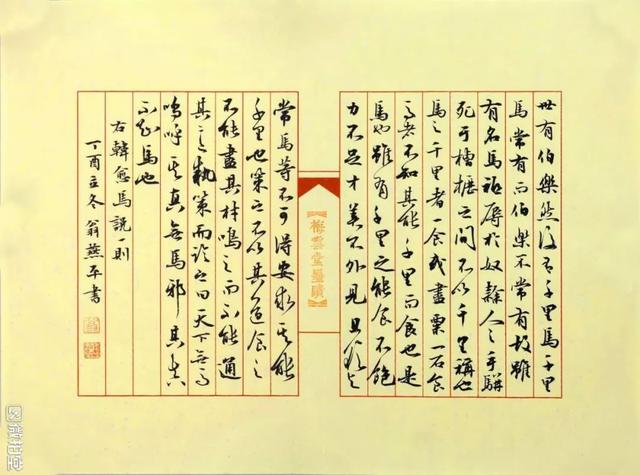 世有伯樂然後有千里馬千里
馬常有而伯樂不常有故雖
有名馬祗辱於奴隸人之手駢
死於槽櫪之間不以千里稱也
馬之千里者一食或盡粟一石食
馬者不知其能千里而食也是
馬也雖有千里之能食不飽
力不足才美不外見且欲與
【梅雲堂墨蹟】
常馬等不可得安求其能
千里也策之不以其道食之
不能盡其材鳴之而不能通
其意執策而臨之曰天下無馬
嗚呼其真無馬邪其真
不知馬也
右韓愈馬說一則
丁酉立冬翁燕平書